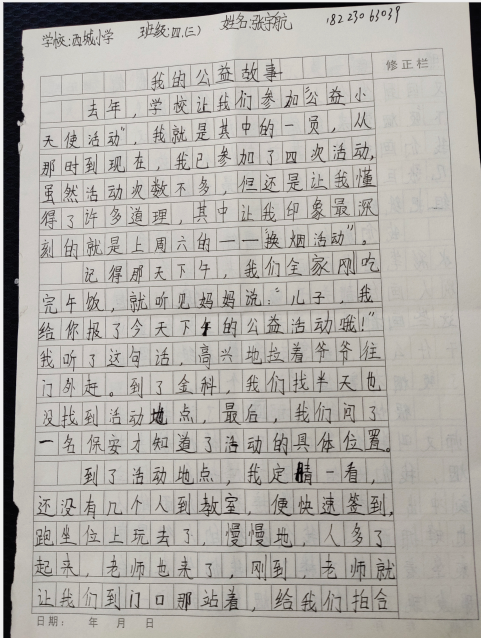 学校:西城小学 班级:四.(三) 姓名:张宇航 18223063039
我的公益故事
修正栏
去年，学校让我们参加“公益小
天使活动”，我就是其中的一员，从
那时到现在，我已参加了四次活动，
虽然活动次数不多，但还是让我懂
得了许多道理，其中让我印象最深
刻的就是上周六的——“换烟活动”。
记得那天下午，我们全家刚吃
完午饭，就听见妈妈说：“儿子，我
给你报了今天下午的公益活动哦！”
我听了这句话，高兴地拉着爷爷往
门外赶。到了金科，我们找半天也
没找到活动地点，最后，我们问了
一名保安才知道了活动的具体位置。
到了活动地点，我定睛一看，
还没有几个人到教室，便快速签到，
跑坐位上玩去了，慢慢地，人多了
起来，老师也来了，刚到，老师就
让我们到门口那站着，给我们拍合
日期： 年 月 日